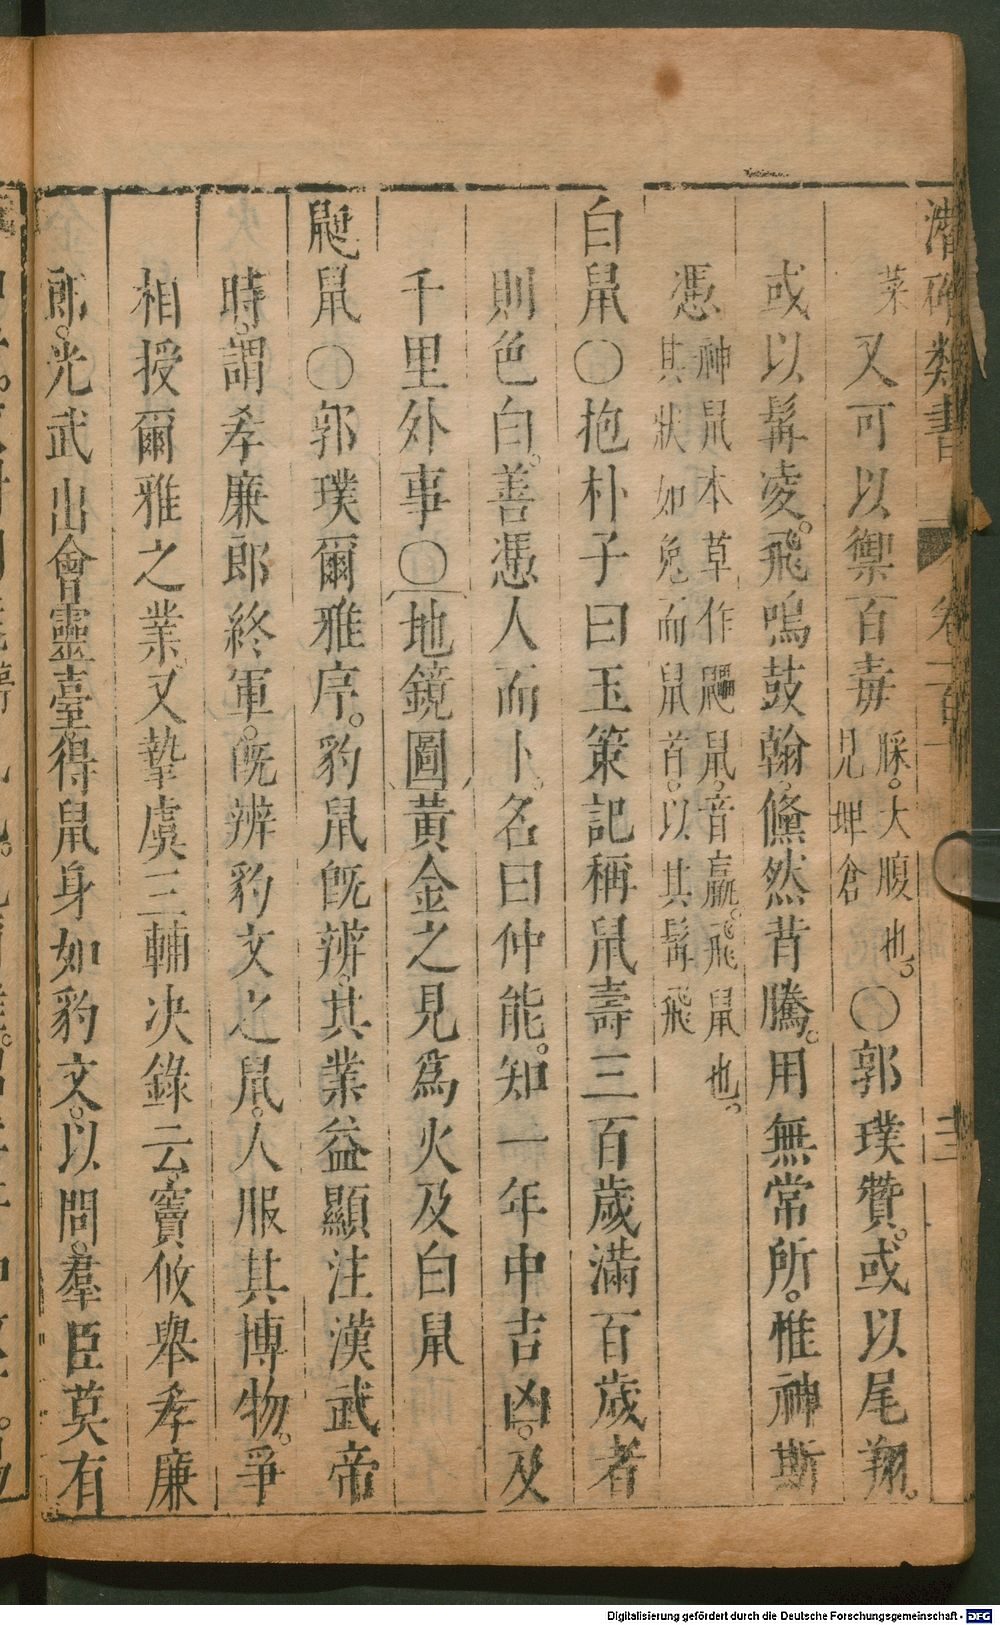 潛確類書 卷一百 十三
菜 又可以禦百毒 脎。大腹也。 見埤倉 〇郭璞贊。或以尾翔。
或以髯凌。飛鳴鼓翰。儵然背騰。用無常所。惟神斯
憑 神鼠本草作鼺鼠。音羸。飛鼠也。 其狀如兔而鼠首。以其髯飛
白鼠〇抱朴子曰玉策記稱鼠壽三百歲滿百歲者
則色白。善憑人而卜。名曰仲能。知一年中吉凶。及
千里外事〇地鏡圖黃金之見爲火及白鼠
鼮鼠〇郭璞爾雅序。豹鼠旣辨。其業益顯注漢武帝
時。謂孝廉郎終軍。旣辨豹文之鼠。人服其博物。爭
相授爾雅之業又摯虞三輔決錄云竇攸舉孝廉
郎。光武出會靈臺得鼠身如豹文。以問。羣臣莫有
Digitalisierung gefördert durch die Deutsche Forschungsgemeinschaft - DFG